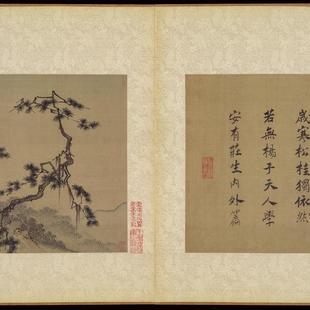 歲寒松桂獨依然
若無楊子天人學
安有莊生內外篇